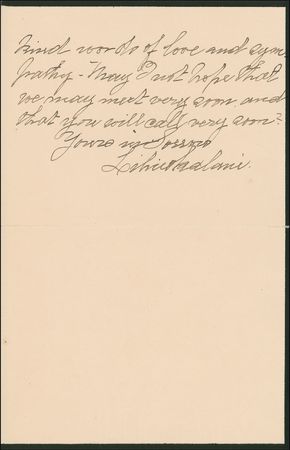 kind words of love and sym-
pathy - May I not hope that
we may meet very soon and
that you will call very soon?
Yours in Sorrow
Liliuokalani.